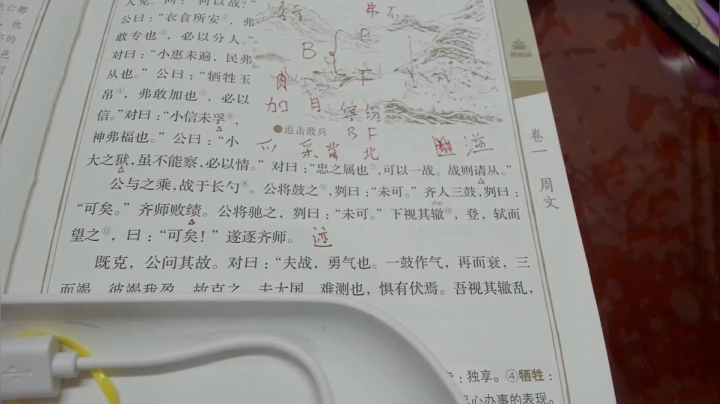 入见。问：“何以战？”
公曰：“衣食所安，弗
敢专也，必以分人。”
对曰：“小惠未遍，民弗
从也。”公曰：“牺牲玉
帛④，弗敢加也⑤，必以
信。”对曰：“小信未孚⑥，
神弗福也。”公曰：“小
大之狱，虽不能察，必以情。”对曰：“忠之属也⑦，可以一战。战则请从。”
公与之乘，战于长勺⑧。公将鼓之⑨，刿曰：“未可。”齐人三鼓，刿曰：
“可矣。”齐师败绩。公将驰之，刿曰：“未可。”下视其辙⑩，登，轼而
zhé
望之⑪，曰：“可矣！”遂逐齐师。
既克，公问其故。对曰：“夫战，勇气也。一鼓作气，再而衰，三
而竭。彼竭我盈，故克之。夫大国，难测也，惧有伏焉。吾视其辙乱，
弗 不
B
P
F
加
B F
北
迹
●追击敌兵
卷一 周文
：独享。④牺牲：
心办事的表现。